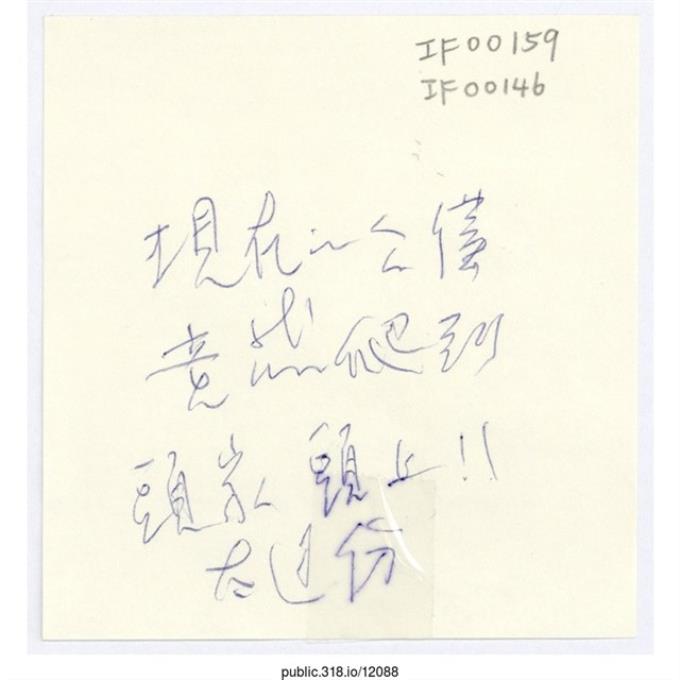 IF00159
IF00146
現在的公僕
竟然爬到
頭家頭上!!
太過份
public.318.io/12088